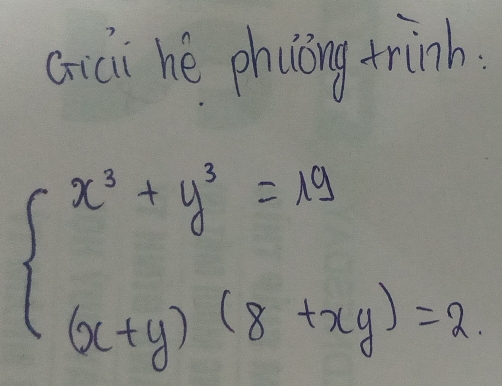 Giải hệ phương trình:
x³ + y³ = 19
(x+y) (8 +xy) = 2.